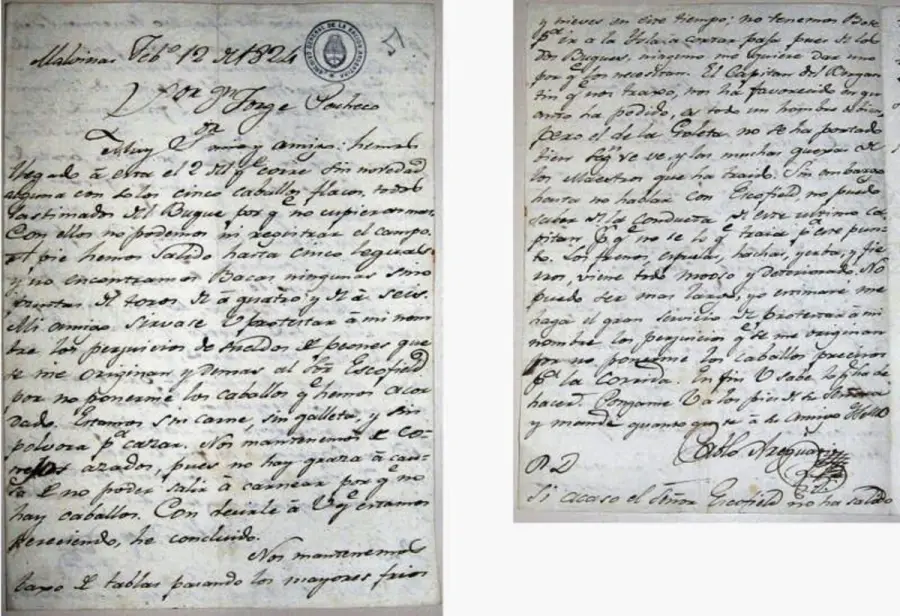 Malvinas Feb.º 12 de 1824
Sor Dn Jorge Pacheco
Muy Sor mio y amigo: hemos
llegado á esta el 2 del q.e corre sin novedad
alguna con solos cinco caballos flacos, todos
lastimados del Buque por q.e no cupieron mas.
Con ellos no podemos ni registrar el campo.
A pie hemos Salido hasta cinco leguas
y no encontramos Bacas ningunas sino
puntas de toros de á quatro, y de á seis.
Mi amigo sirvase V protestar á mi nom
bre los perjuicios de sueldos de peones que
se me originan y demas al Sor Escofield
por no ponerme los caballos q.e hemos acor
dado. Estamos sin carne, sin galleta, y sin
polvora p.a cazar. Nos mantenemos de co-
nejos azados, pues no hay graza á cau-
sa de no poder salir á carnear por q.e no
hay caballos. Con decirle á V q.e estamos
pereciendo, he concluido.
Nos mantenemos
baxo de tablas pasando los mayores frios
y nieves en este tiempo; no tenemos Bote
p.a ir a la Ysla a cortar paja pues de los
dos Buques, ninguno me quiere dar uno
por q.e los necesitan. El Capitan del Bergan
tin q.e nos traxo, nos ha favorecido en qu
anto ha podido, es todo un hombre
pero el de la Goleta no se ha portado
bien seg.n se ve, y las muchas quejas de
los Maestros que ha traido. Sin embargo
hasta no hablar con Escofield no puedo
saber de la conducta de este ultimo ca-
pitan p.r q.e no se lo q.e traia p.a este pun-
to. Los frenos, espuelas, hachas, yerba, y fie-
rros, viene todo mooso y deteriorado. No
puedo ser mas largo, yo estimaré me
haga el gran servicio de protestar á mi
nombre los perjuicios q.e se me originan
por no ponerme los caballos precisos
p.a la Corrida. En fin V sabe lo q.e ha de
hacer. Pongame V a los pies de su Señora
y mande quanto guste á su Amigo
Pablo Areguati
P.D
Si acaso el Señor Escofield no ha salido
ARCHIVO GENERAL DE LA NACION ARGENTINA